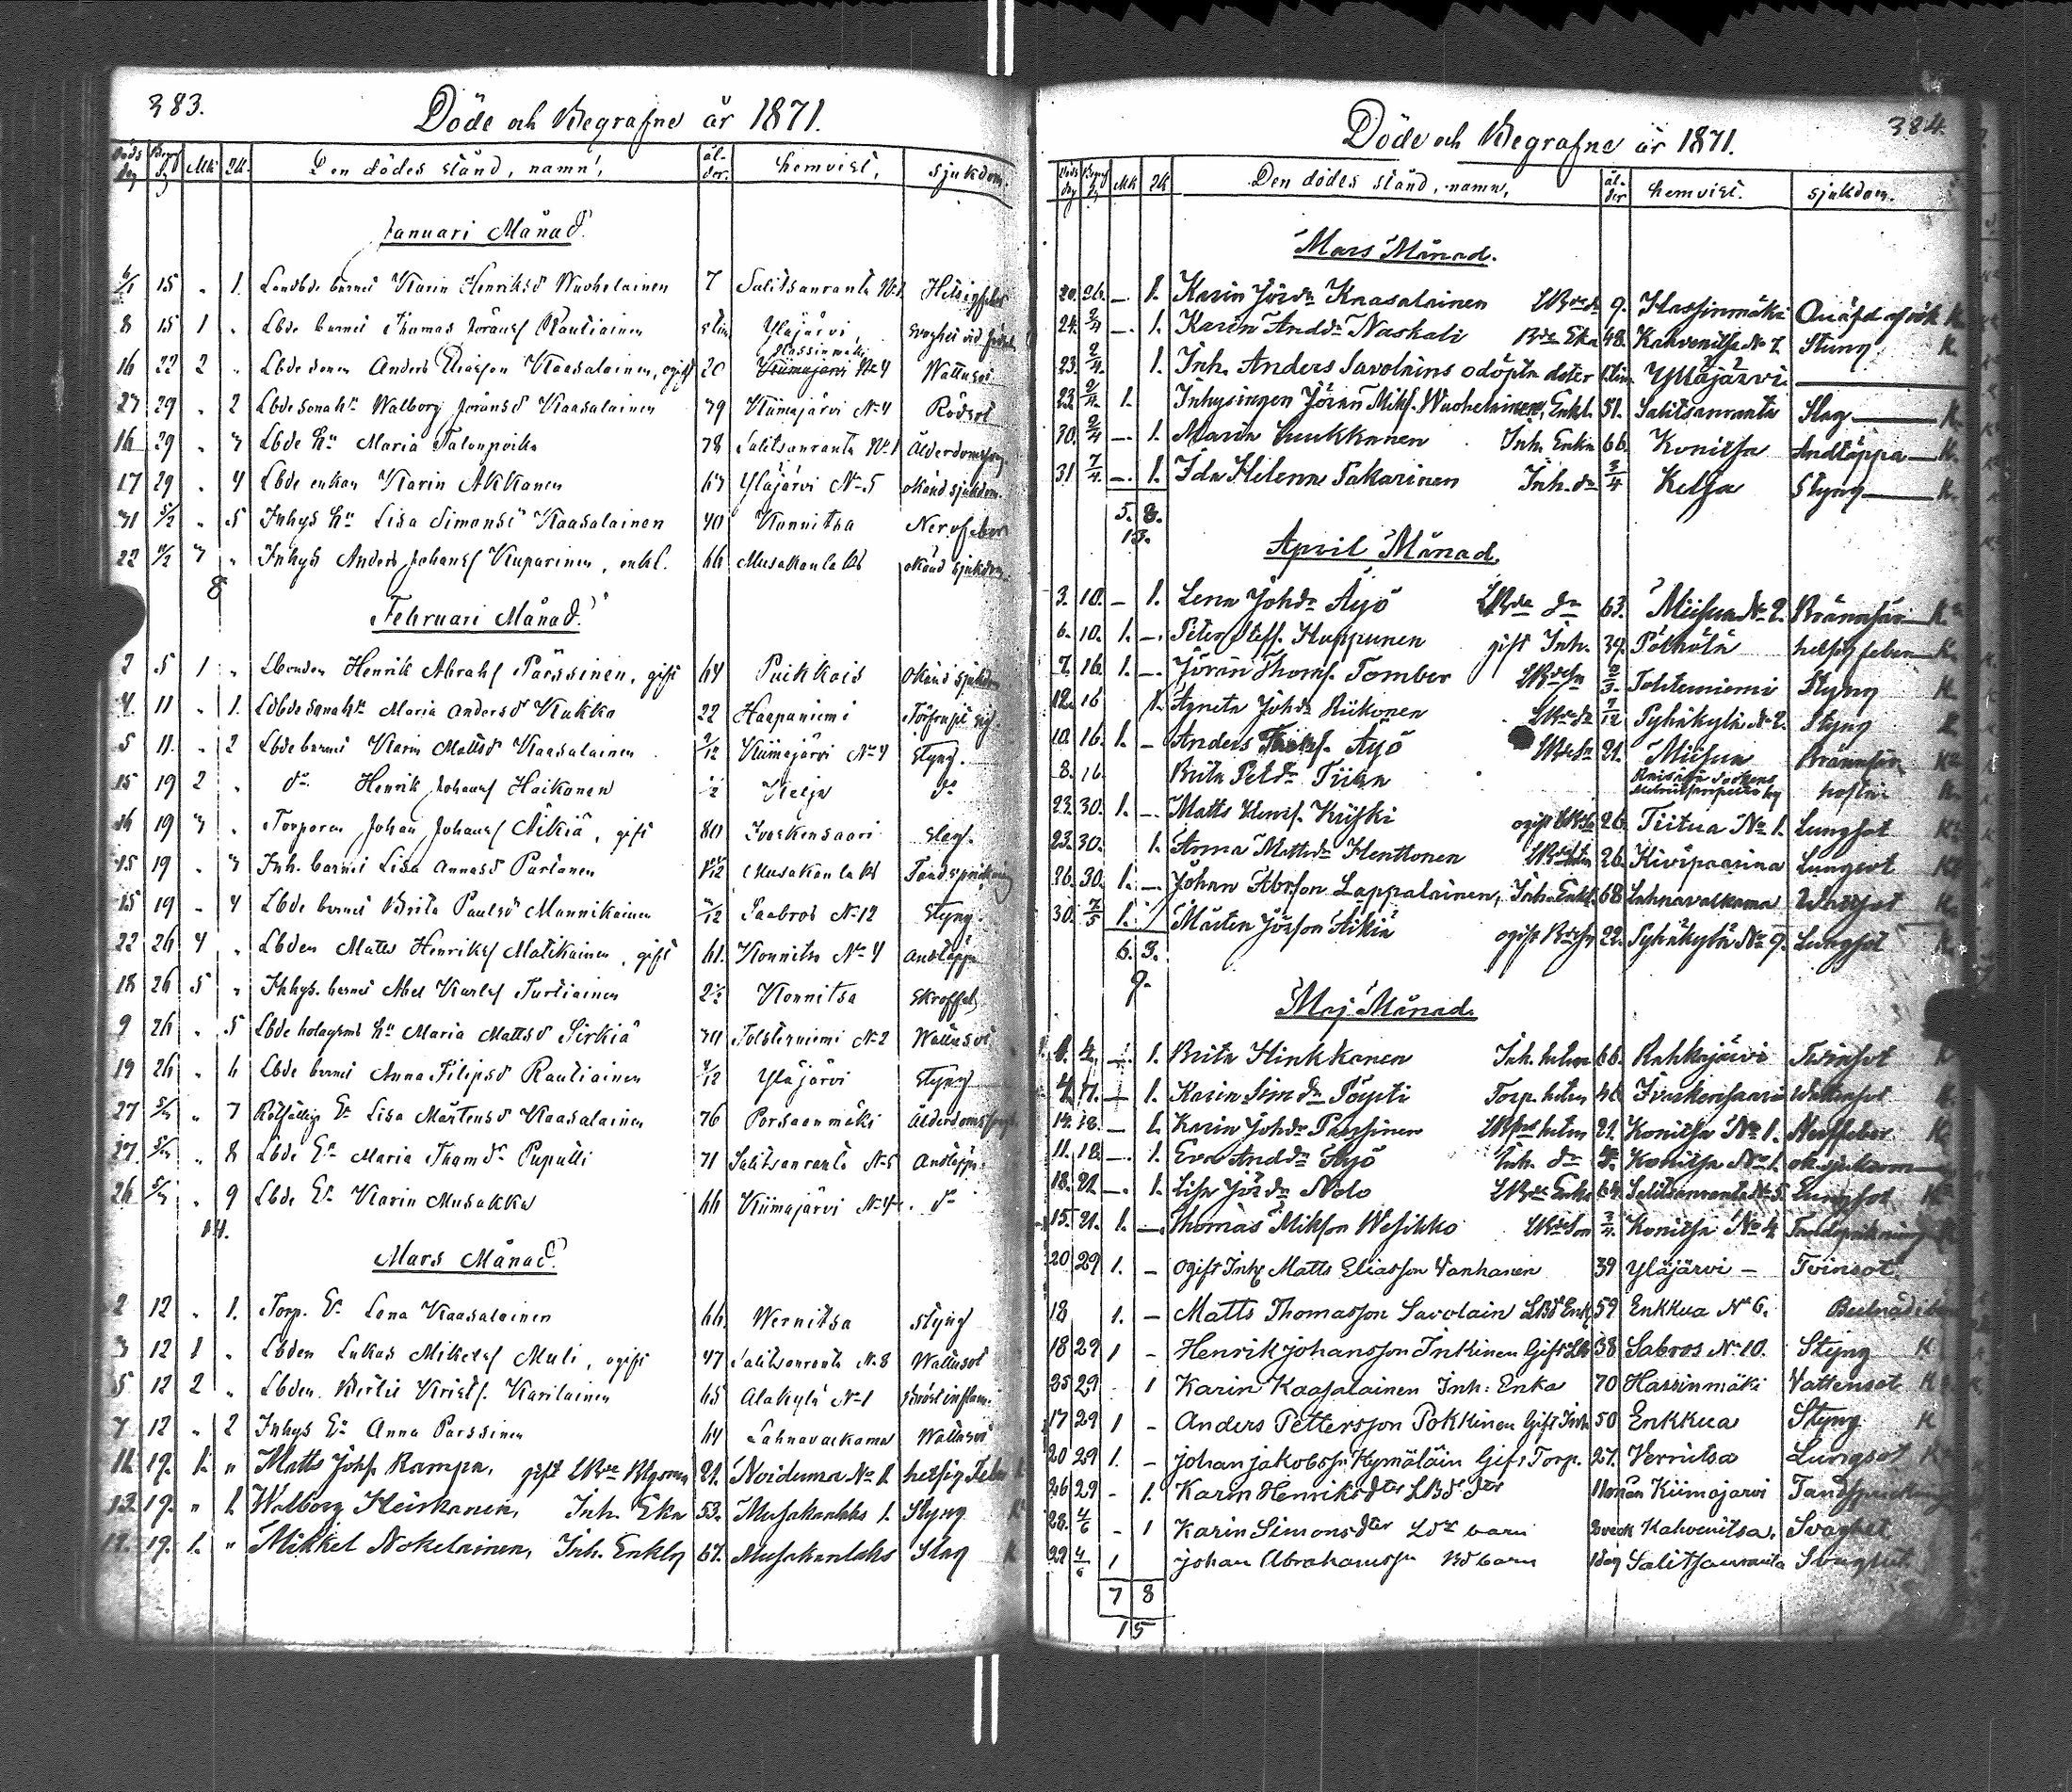 383.
Döde och Begrafne år 1871.
Döds dag Begr dg Mk Qk Den dödes stånd, namn, ål-der. hemvist, sjukdom.
Januari Månad.
6/1 15 „ 1. Landbde barnet Karin Henriksd Wuohelainen 7 Salitsanranta No 1
8 15 1 „ Lbde barnet Thomas Jöransf Rautiainen Yläjärvi, svaghet vid
Hassinmäki
16 22 2 „ Lbde sonen Anders Eliasson Kaasalainen, ogift 20 Kiimajärvi No 4 Wattusot
27 29 „ 2 Lbde sona hu Walborg Jöransd Kaasalainen 79 Kiimajärvi No 4 Rödsot
16 29 „ 3 Lbde hu Maria Talonpoika 78 Salitsanranta No 1
17 29 „ 4 Lbde enkan Karin Akkanen 67 Yläjärvi No 5 okänd sjukdom
31 5/2 „ 5 Inhys hu Lisa Simonsd Kaasalainen 40 Konnitsa Nervfeber
22 5/2 3 „ Inhys Anders Johansf Kuparinen, enkl. 66 Musakanlaks okänd sjukdom
8
Februari Månad.
2 5 1 „ Lbonden Henrik Abrahf Pärssinen, gift 64 Puikkois okänd sjukdom
4. 11 „ 1. Lbde sona hu Maria Andersd Kukko 22 Haapaniemi
5 11. „ 2 Lbde barnet Karin Mattsd Kaasalainen 2/12 Kiimajärvi No 4 Styng.
15 19 2 „ do Henrik Johansf Haikonen 1/2 Kelja do
16 19 3 „ Torparen Johan Johansf Äikiä, gift 80 Ivaskensaari Slag.
15 19 „ 3 Inh. barnet Lisa Annasd Partanen Musakanlaks Tandsprickning
15 19 „ 4 Lbde barnet Brita Paulsd Mannikainen Saabros No 12 Styng.
22 26 4 „ Lbden Matts Henriksf Matikainen, gift 61. Konnitsa No 4 andtäppa
18 26 5 „ Inhys. barnet Abel Karlsf Turtiainen 2½ Konnitsa Skroffel
9 26 „ 5 Lbde bolagsms hu Maria Mattsd Sirkiä 70 Tolsterniemi No 2 Wattusot
19 26 „ 6 Lbde barnet Anna Filipsd Rautiainen Yläjärvi Styng
27 5/3 „ 7 Rotfällig Ea Lisa Mårtensd Kaasalainen 76 Porsaanmäki
27 5/3 „ 8 Lbde Ea Maria Thomdr Puputti 71 Salitsanranta No 5 Andtäppa
26 5/3 „ 9 Lbde Ea Karin Musakka 66 Kiimajärvi No 4. do
14.
Mars Månad.
2 12 „ 1. Torp. Ea Lena Kaasalainen 66. Wernitsa styng
3 12 1 „ Lbden Lukas Mikelsf Muli, ogift 47 Salitsanranta No 8 Wattusot
5 12 2 „ Lbden Bertil Kristf. Karilainen 65 Alakylä No 1 Bröstinflam.
7 12 „ 2 Inhys Ea Anna Parssinen 64 Lahnavalkama Wattusot
11. 19. 1. „ Matts Johf. Rampa, gift LBde 21. Noiduma No 1. helsig Feber
13. 19. „ 1. Walborg Heiskanen, Inh. Eka 53. Musakanlaks 1. Styng K
19. 1. „ Mikkel Nokelainen, Inh. Enkling 67. Musakanlaks Slag K
384.
Döde och Begrafne år 1871.
Döds dag Begr dg Mk Qk Den dödes stånd, namn, ål-der hemvist. sjukdom.
Mars Månad.
20. 26. — 1. Karin Jördr Knasalainen LBdedr 9. Hassinmäki
24. 2/4 — 1. Karin Anddr Naskali Bde Eka 48. Kahvenitsa No 7. Styng K.
23. 2/4. 1. Inh. Anders Savolains odöpta doter Yläjärvi
23. 2/4. 1. Inhysingen Jöran Mikf. Wuohelainen, Enkl. 51. Salitsanranta Slag K.
30. 2/4 — 1. Maria Luukkanen Inh. Enka 66. Konitsa Andtäppa K.
31 7/4. — 1. Ida Helena Pakarinen Inh. dr 3/4 Kelja Styng K.
5. 8.
13.
April Månad.
3. 10. — 1. Lena Johdr Äyö LBde dr 63. Miisua No 2. Brännsår K
6. 10. 1. — Peter Steff. Huppunen gift Inh. 34. Pölhölä helsigfeber K.
7. 16. 1. — Jöran Thomf. Tomber LBdesn 2/3. Tolsterniemi Styng K
12. 16 1. Agneta Johdr Riikonen LBdedr 7/12 Pyhäkylä No 2. Styng
10. 16. 1. — Anders Äyö 21. Miisua Brännsår
8. 16. Brita Petdr Tiian hostn
23. 30. 1. — Matts Henrf. Kiiski ogift 26. Tiitua No 1. Lungsot
23. 30. 1. Anna Mattsdr Henttonen 26. Kivipaarina Lungsot
26. 30. 1. — Johan Abrfson Lappalainen, Inh. Enkl. 68. Lahnavalkama
30. 7/5 1. Mårten Jörfson Äikiä ogift 22. Pyhäkylä No 9. Lungsot
6. 3.
9.
Maj Månad.
1. — 1. Brita Hinkkanen Inh. hstrn 66. Rahkajärvi Tvinsot
4. 7. — 1. Karin Simdr Pöysti Torp. hstrn 46. Ivaskensaari
14. 18. — 1. Karin Johdr Parssinen 21. Konitsa No 1. Nerffeber K
11. 18. — 1. Eva Anddr Äyö Inh. dr Konitsa No 1.
18. 21. — 1. Lisa Jördr Nolo LBde Enka 64. Salitsanranta No 5. Lungsot
15. 21. 1. — Thomas Mikson Wesikko LBdeson 3/4. Konitsa No 4 Tandsprickning
20 29 1. — ogift Inh Matts Eliasson Vanhanen 39 Yläjärvi — Tvinsot.
18 1. — Matts Thomasson Savolain LBd Enk 59 Enkkua No 6.
18 29 1 - Henrik Johansson Inkinen Gift Lb 38 Sabros No 10. Styng K
25 29 - 1 Karin Kaasalainen Inh: Enka 70 Hassinmäki Vattensot
17 29 1 - Anders Pettersson Pokkinen Gift Inh 50 Enkkua Styng K
20 29 1. - Johan Jakobsson Kymäläin Gift Torp. 27. Vernitsa Lungsot
26 29 - 1. Karin Henriksdter LBd dter 11 mån Kiimajarvi Tandsprickning
28. 4/6 - 1 Karin Simonsdter barn Kahvenitsa, Svaghet
29 4/6 1 Johan Abrahamsson barn 1 dag Salitsanranta Svaghet
7 8
15